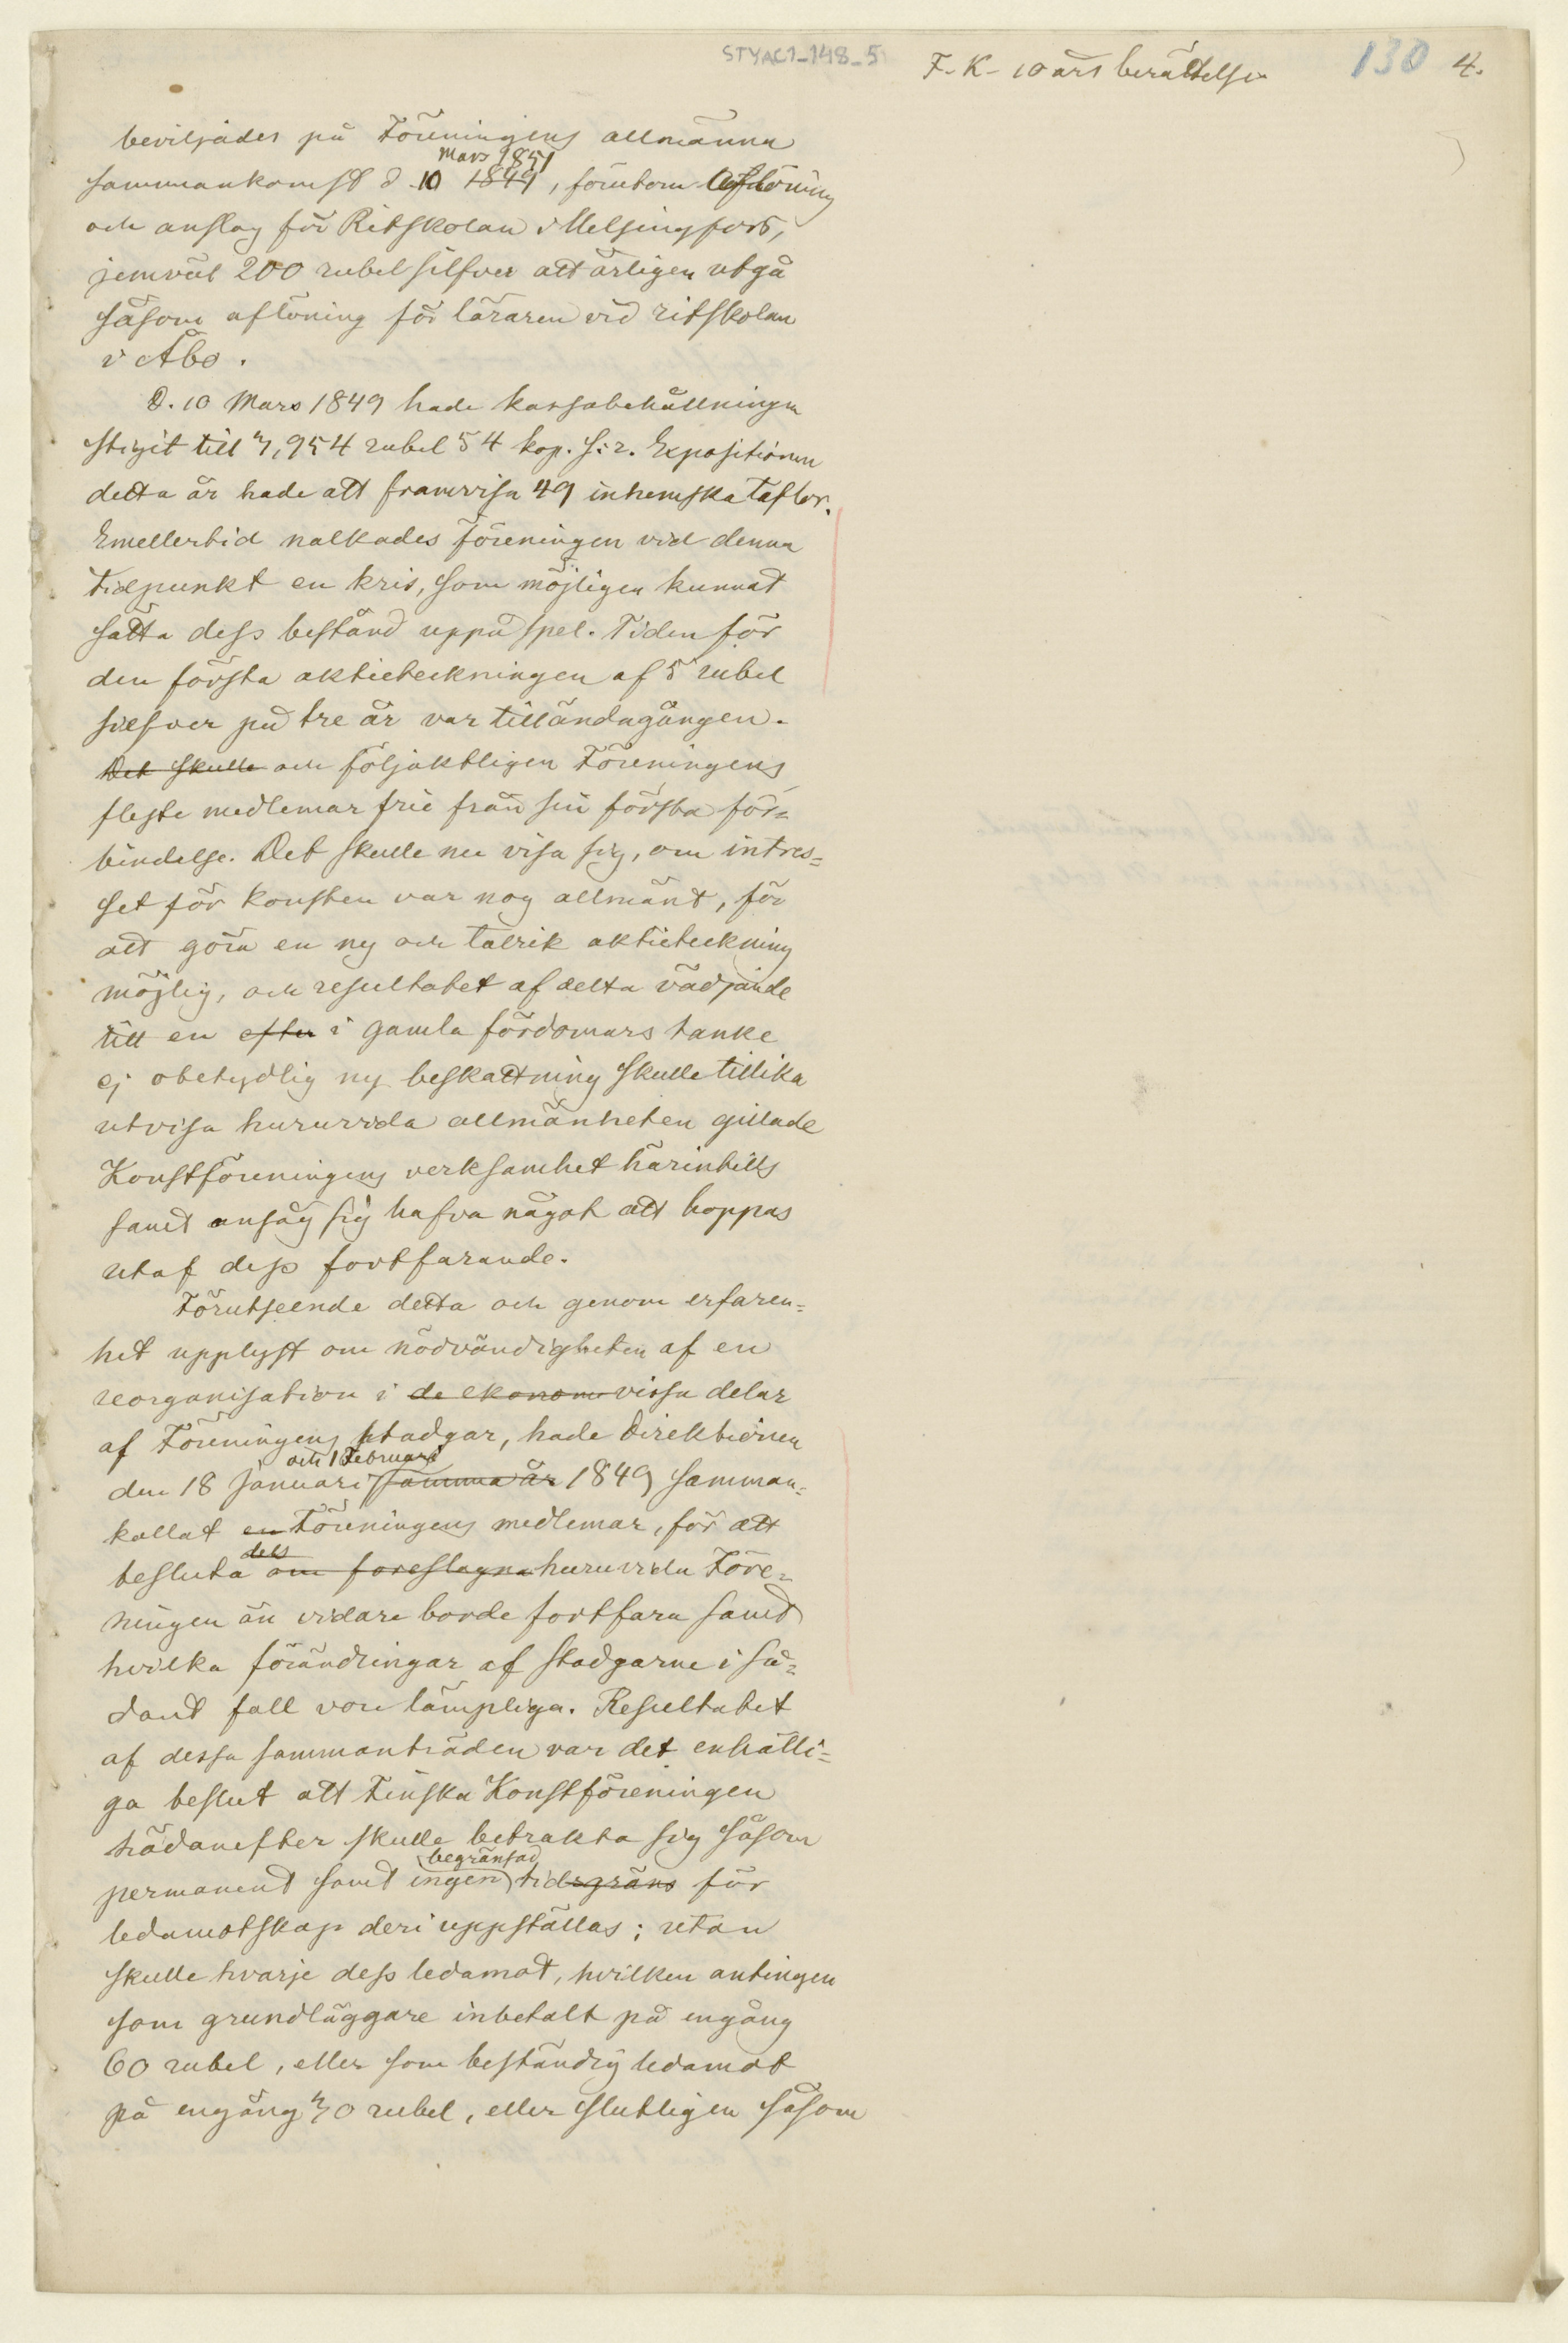 STYAC1_148_5
F. K. 10 års berättelse
130 4.
beviljades på Föreningens allmänna
Mars 1851
sammankomst d. 10 1849, förutom aflöning
och anslag för Ritskolan i Helsingfors,
jemväl 200 rubel silfver att årligen utgå
såsom aflöning för läraren vid ritskolan
i Åbo.
D. 10 Mars 1849 hade kassabehållningen
stigit till 3,954 rubel 54 kop. S:r. Expositionen
detta år hade att framvisa 49 inhemska taflor.
Emellertid nalkades föreningen vid denna
tidpunkt en kris, som möjligen kunnat
sätta dess bestånd uppå spel. Tiden för
den första aktieteckningen af 5 rubel
silfver på tre år var tilländagången.
Det skulle och följaktligen Föreningens
fleste medlemar frie från sin första för=
bindelse. Det skulle nu visa sig, om intres=
set för konsten var nog allmänt, för
att göra en ny och talrik aktieteckning
möjlig, och resultatet af detta vädjande
till en efter i gamla fördomars tanke
ej obetydlig ny beskattning skulle tillika
utvisa huruvida allmänheten gillade
Konstföreningens verksamhet härintills
samt ansåg sig hafva något att hoppas
utaf dess fortfarande.
Förutseende detta och genom erfaren=
het upplyst om nödvändigheten af en
reorganisation i de ekonom vissa delar
af Föreningens stadgar, hade Direktionen
och 1 Februari
den 18 Januari samma år 1849 samman=
kallat en Föreningens medlemar, för att
dels
besluta om föreslagna huruvida Före=
ningen än vidare borde fortfara samt
hvilka förändringar af stadgarne i så=
dant fall vore lämpliga. Resultatet
af dessa sammanträden var det enhälli=
ga beslut att Finska Konstföreningen
hädanefter skulle betrakta sig såsom
begränsad
permanent samt ingen tidsgräns för
ledamotskap deri uppställas; utan
skulle hvarje dess ledamot, hvilken antingen
som grundläggare inbetalt på engång
60 rubel, eller som beständig ledamot
på engång 30 rubel, eller slutligen såsom